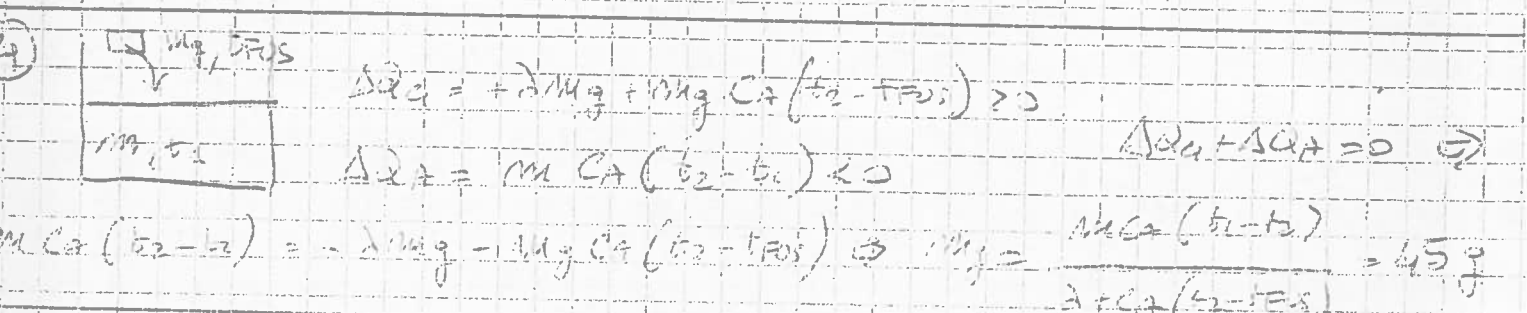 4)
mg, tFUS
m, t1
ΔQg = +λmg + mg CA (t2 - tFUS) > 0
ΔQA = m CA (t2 - t1) < 0
ΔQg + ΔQA = 0 ⇒
m CA (t2 - t1) = - λmg - mg CA (t2 - tFUS) ⇒ mg = m CA (t1 - t2) / λ + CA (t2 - tFUS) = 45 g